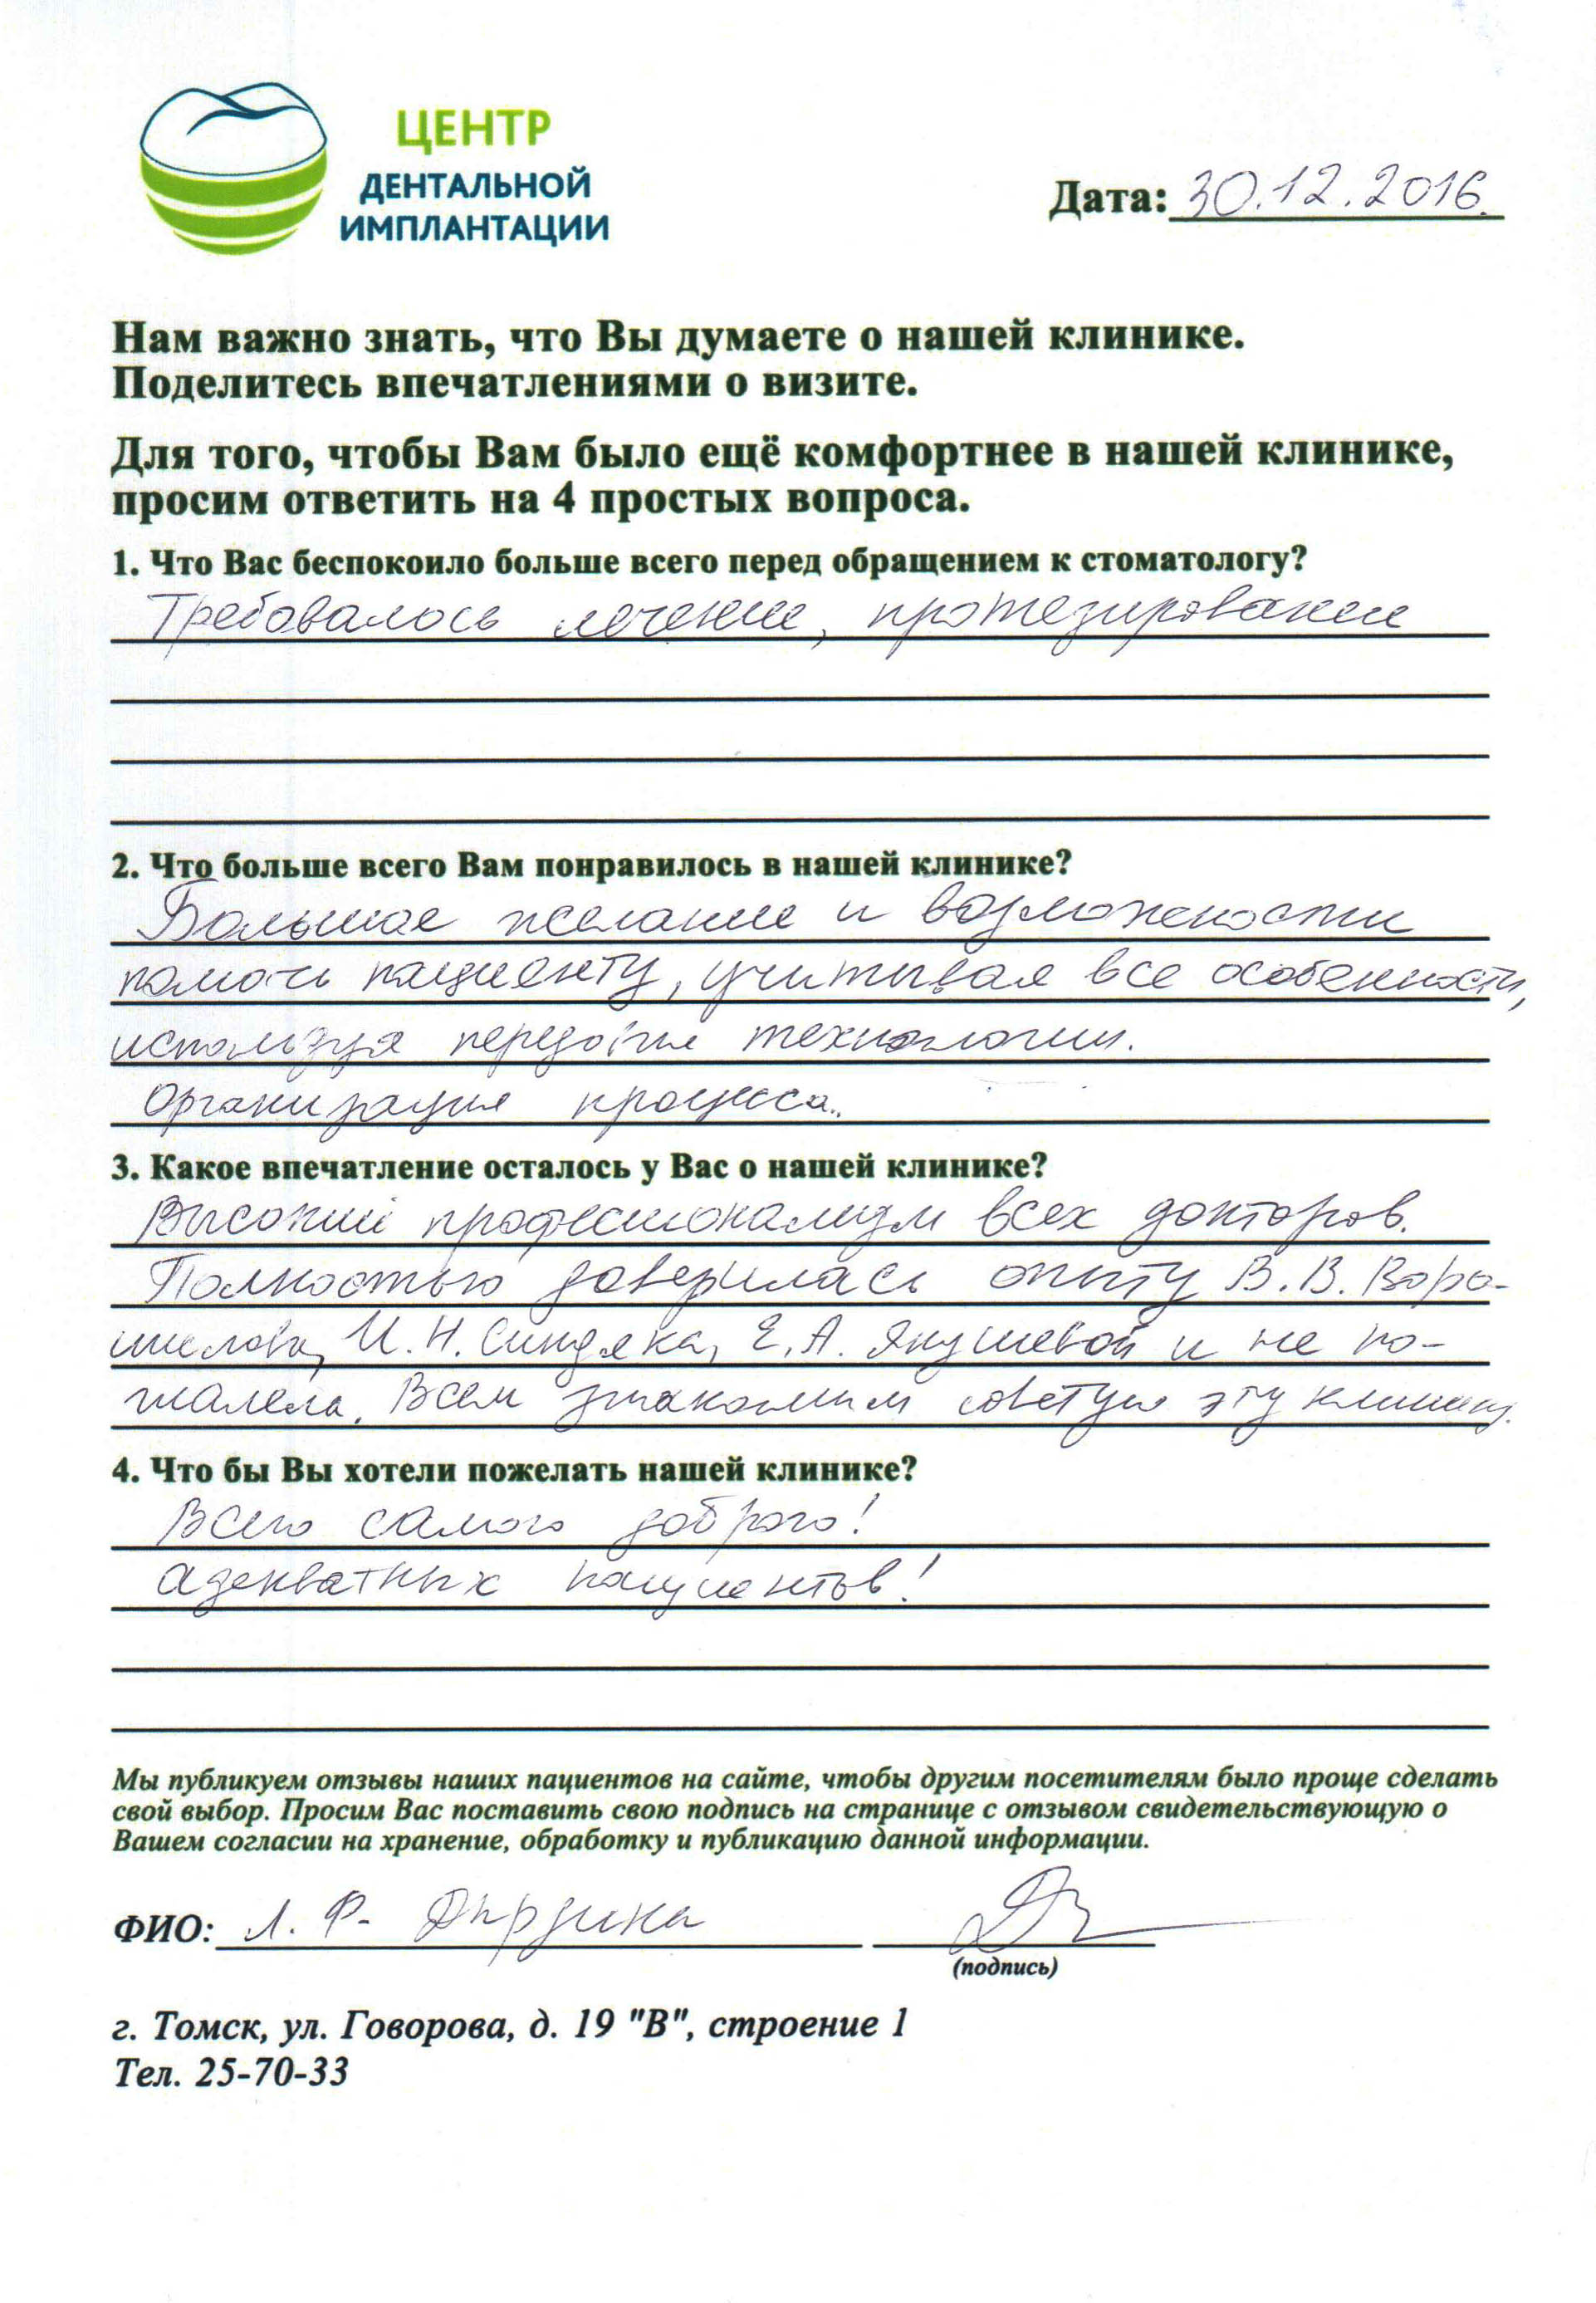 ЦЕНТР
ДЕНТАЛЬНОЙ
ИМПЛАНТАЦИИ
Дата: 30.12.2016.
Нам важно знать, что Вы думаете о нашей клинике.
Поделитесь впечатлениями о визите.
Для того, чтобы Вам было ещё комфортнее в нашей клинике,
просим ответить на 4 простых вопроса.
1. Что Вас беспокоило больше всего перед обращением к стоматологу?
Требовалось лечение, протезирование
2. Что больше всего Вам понравилось в нашей клинике?
Большое желание и возможности
помочь пациенту, учитывая все особенности,
используя передовые технологии.
Организация процесса.
3. Какое впечатление осталось у Вас о нашей клинике?
Высокий профессионализм всех докторов.
Полностью доверилась опыту В.В. Воро-
шилова, И.Н. Синдяка, Е.А. Якушевой и не по-
жалела. Всем знакомым советую эту клинику.
4. Что бы Вы хотели пожелать нашей клинике?
Всего самого доброго!
Адекватных пациентов!
Мы публикуем отзывы наших пациентов на сайте, чтобы другим посетителям было проще сделать
свой выбор. Просим Вас поставить свою подпись на странице с отзывом свидетельствующую о
Вашем согласии на хранение, обработку и публикацию данной информации.
ФИО: Л. Ф.
(подпись)
г. Томск, ул. Говорова, д. 19 "В", строение 1
Тел. 25-70-33